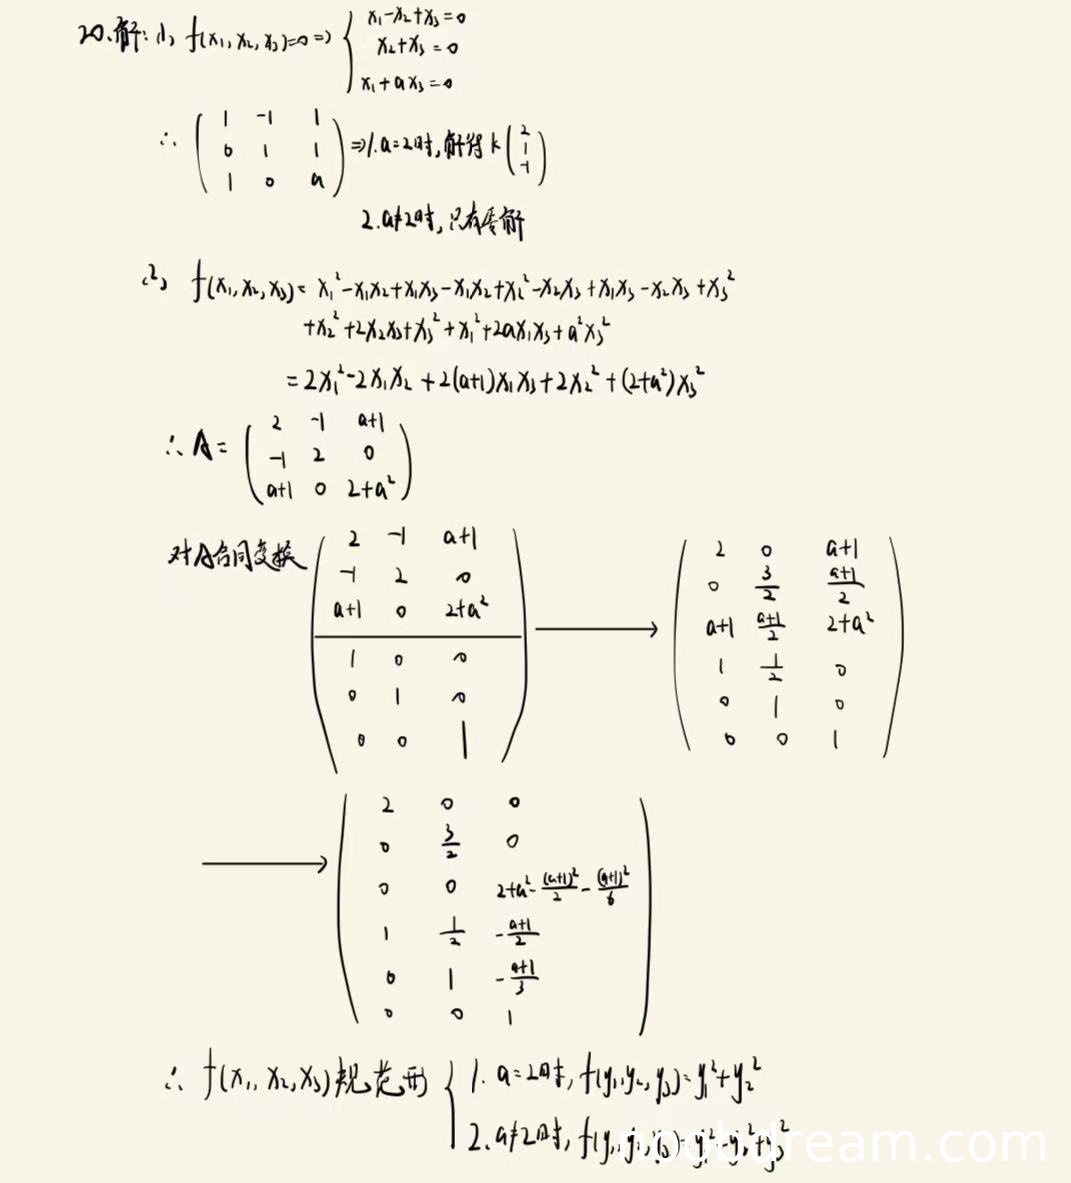 20.解:(1) f(x₁,x₂,x₃)=0 ⇒ { x₁-x₂+x₃=0
x₂+x₃=0
x₁+ax₃=0
∴ ( 1 -1 1
0 1 1
1 0 a ) ⇒ 1.a=2时,解得 k ( 2 1 -1 )
2.a≠2时,只有零解
(2) f(x₁,x₂,x₃)= x₁²-x₁x₂+x₁x₃-x₁x₂+x₂²-x₂x₃+x₁x₃-x₂x₃+x₃²
+x₂²+2x₂x₃+x₃²+x₁²+2ax₁x₃+a²x₃²
=2x₁²-2x₁x₂+2(a+1)x₁x₃+2x₂²+(2+a²)x₃²
∴ A= ( 2 -1 a+1
-1 2 0
a+1 0 2+a² )
对A合同变换 ( 2 -1 a+1
-1 2 0
a+1 0 2+a²
1 0 0
0 1 0
0 0 1 )
→ ( 2 0 a+1
0 3/2 (a+1)/2
a+1 (a+1)/2 2+a²
1 1/2 0
0 1 0
0 0 1 )
→ ( 2 0 0
0 3/2 0
0 0 2+a²-(a+1)²/2-(a+1)²/6
1 1/2 -(a+1)/2
0 1 -(a+1)/3
0 0 1 )
∴ f(x₁,x₂,x₃)规范形 { 1. a=2时, f(y₁,y₂,y₃)=y₁²+y₂²
2. a≠2时, f(y₁,y₂,y₃)=y₁²+y₂²+y₃²
noobdream.com